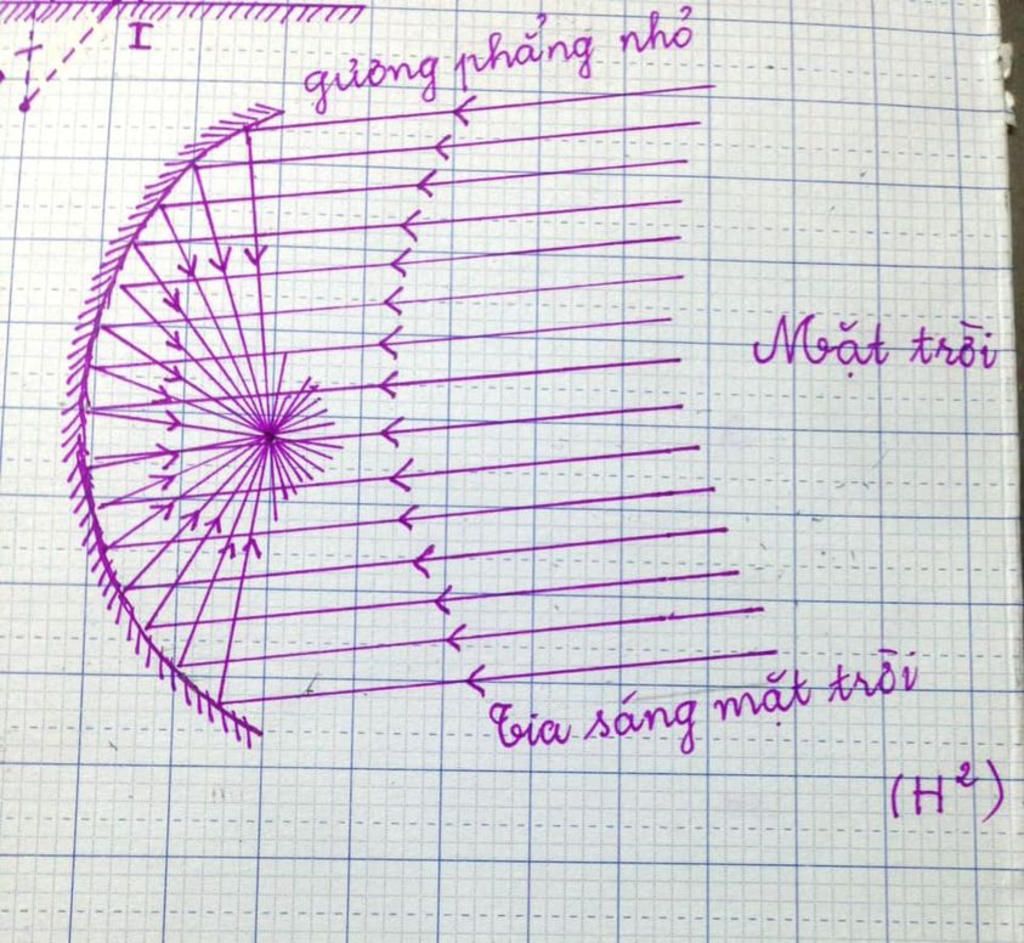 I
gương phẳng nhỏ
Mặt trời
Tia sáng mặt trời
(H²)